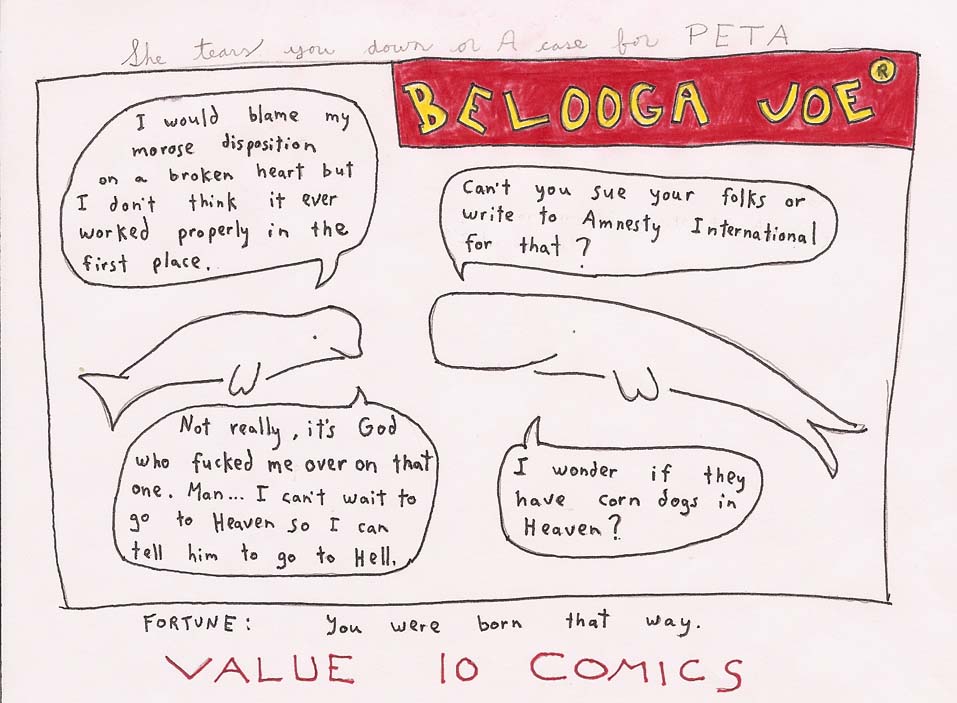 She tears you down or A case for PETA
BELOOGA JOE®
I would blame my
morose disposition
on a broken heart but
I don't think it ever
worked properly in the
first place.
Can't you sue your folks or
write to Amnesty International
for that?
Not really, it's God
who fucked me over on that
one. Man... I can't wait to
go to Heaven so I can
tell him to go to Hell.
I wonder if they
have corn dogs in
Heaven?
FORTUNE: You were born that way.
VALUE 10 COMICS